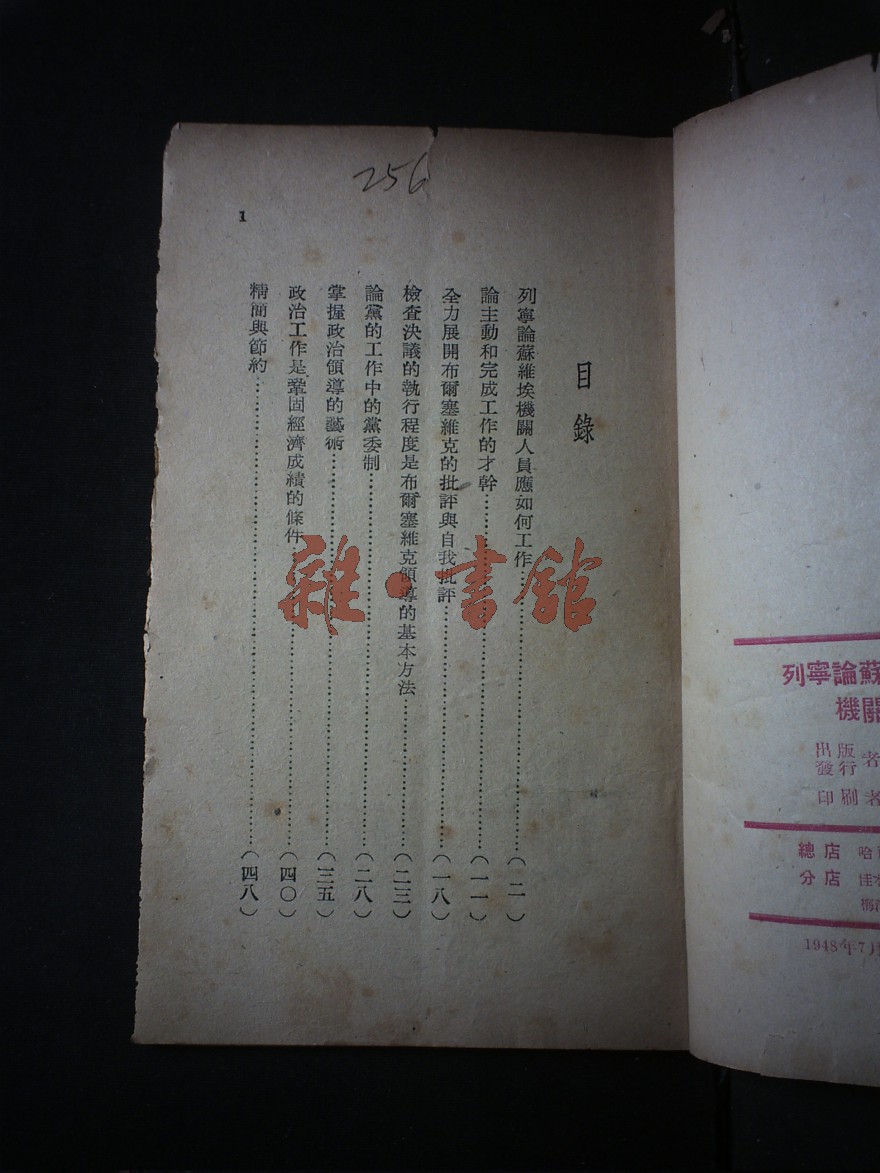 256
1
目錄
列寧論蘇維埃機關人員應如何工作……(二)
論主動和完成工作的才幹……(一一)
全力展開布爾塞維克的批評與自我批評……(一八)
檢查決議的執行程度是布爾塞維克領導的基本方法……(二三)
論黨的工作中的黨委制……(二八)
掌握政治領導的藝術……(三五)
政治工作是鞏固經濟成績的條件……(四〇)
精簡與節約……(四八)
雜·書館
列寧論蘇
機關
出版
發行者
印刷者
總店 哈
分店 佳
1948年7月